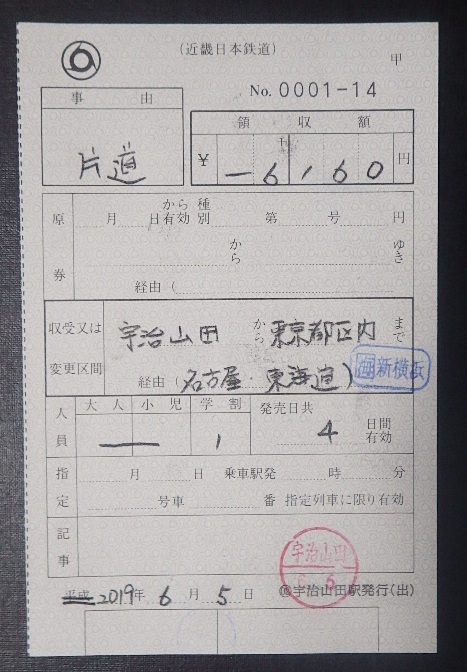 (近畿日本鉄道)
甲
No. 0001-14
事 由
片道
領 収 額
千
¥ -6160 円
原券
月 日から有効 種別 第 号 円
から ゆき
経由 (
収受又は変更区間
宇治山田 から 東京都区内 まで
経由 (名古屋 東海道)
新横浜
人員
大人 小児 学割
— 1
発売日共 4 日間有効
指定
月 日 乗車駅発 時 分
号車 番 指定列車に限り有効
記事
宇治山田
6
平成 2019年 6月 5日
宇治山田駅発行(出)